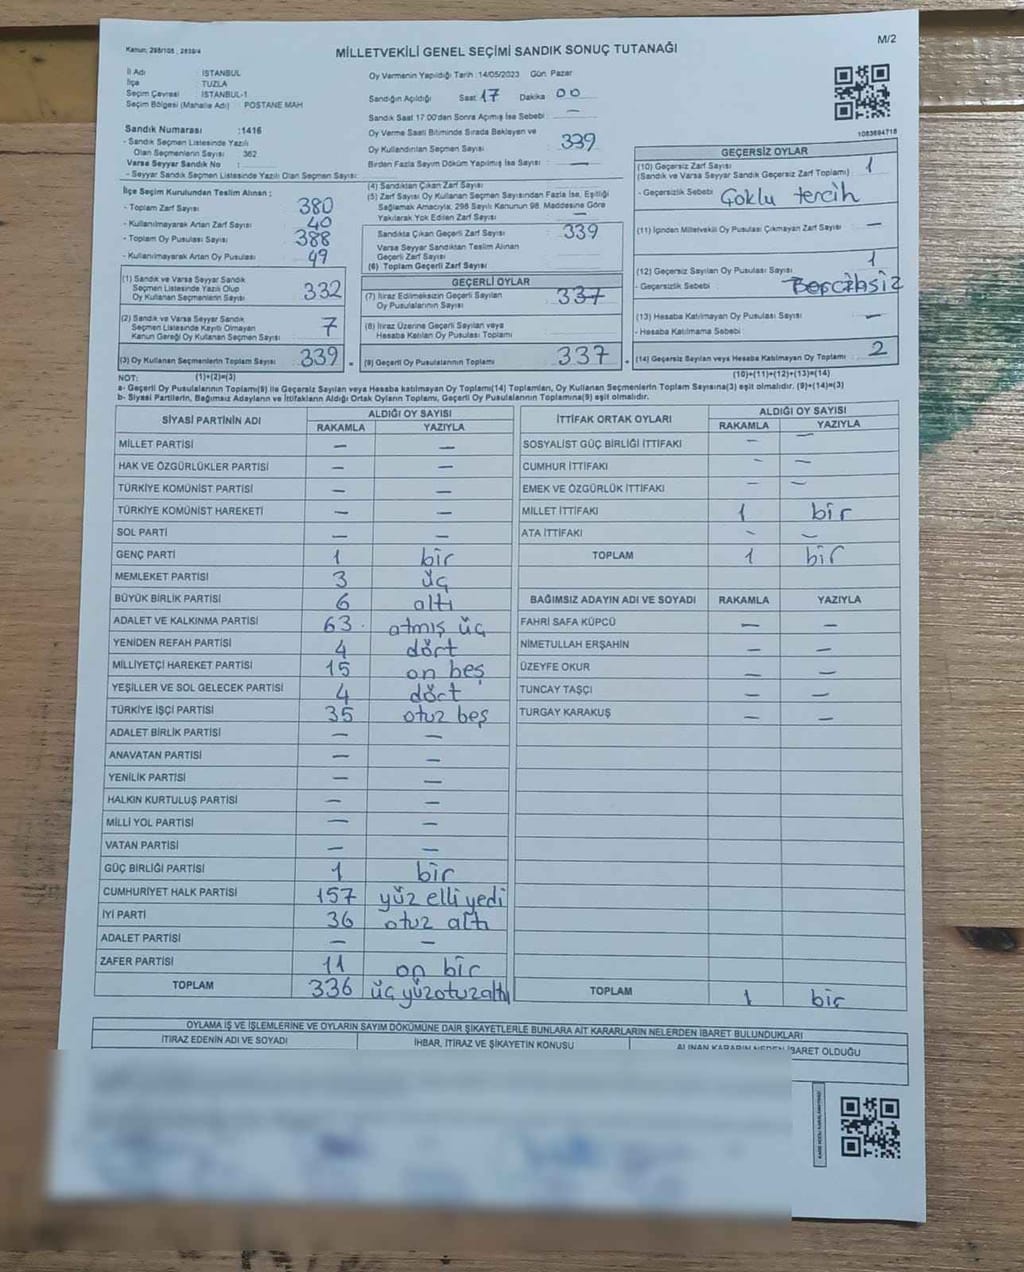 Kanun: 298/105 , 2839/4
MİLLETVEKİLİ GENEL SEÇİMİ SANDIK SONUÇ TUTANAĞI
M/2
İl Adı : İSTANBUL
İlçe : TUZLA
Seçim Çevresi : İSTANBUL-1
Seçim Bölgesi (Mahalle Adı) : POSTANE MAH
Sandık Numarası :1416
- Sandık Seçmen Listesinde Yazılı
Olan Seçmenlerin Sayısı 362
Varsa Seyyar Sandık No :
- Seyyar Sandık Seçmen Listesinde Yazılı Olan Seçmen Sayısı:
Oy Vermenin Yapıldığı Tarih :14/05/2023 Gün: Pazar
Sandığın Açıldığı Saat 17 Dakika 00
Sandık Saat 17.00'den Sonra Açılmış İse Sebebi : —
Oy Verme Saati Bitiminde Sırada Bekleyen ve
Oy Kullandırılan Seçmen Sayısı : 339
Birden Fazla Sayım Döküm Yapılmış İse Sayısı : —
1083694718
İlçe Seçim Kurulundan Teslim Alınan ;
- Toplam Zarf Sayısı : 380
- Kullanılmayarak Artan Zarf Sayısı : 40
- Toplam Oy Pusulası Sayısı : 388
- Kullanılmayarak Artan Oy Pusulası : 49
(1) Sandık ve Varsa Seyyar Sandık
Seçmen Listesinde Yazılı Olup
Oy Kullanan Seçmenlerin Sayısı 332
(2) Sandık ve Varsa Seyyar Sandık
Seçmen Listesinde Kayıtlı Olmayan
Kanun Gereği Oy Kullanan Seçmen Sayısı 7
(3) Oy Kullanan Seçmenlerin Toplam Sayısı 339
(4) Sandıktan Çıkan Zarf Sayısı
(5) Zarf Sayısı Oy Kullanan Seçmen Sayısından Fazla İse, Eşitliği
Sağlamak Amacıyla; 298 Sayılı Kanunun 98. Maddesine Göre
Yakılarak Yok Edilen Zarf Sayısı —
Sandıkta Çıkan Geçerli Zarf Sayısı : 339
Varsa Seyyar Sandıktan Teslim Alınan
Geçerli Zarf Sayısı
(6) Toplam Geçerli Zarf Sayısı
GEÇERLİ OYLAR
(7) İtiraz Edilmeksizin Geçerli Sayılan
Oy Pusulalarının Sayısı 337
(8) İtiraz Üzerine Geçerli Sayılan veya
Hesaba Katılan Oy Pusulası Toplamı
(9) Geçerli Oy Pusulalarının Toplamı 337
GEÇERSİZ OYLAR
(10) Geçersiz Zarf Sayısı 1
(Sandık ve Varsa Seyyar Sandık Geçersiz Zarf Toplamı)
- Geçersizlik Sebebi : Çoklu tercih
(11) İçinden Milletvekili Oy Pusulası Çıkmayan Zarf Sayısı —
(12) Geçersiz Sayılan Oy Pusulası Sayısı 1
- Geçersizlik Sebebi :
(13) Hesaba Katılmayan Oy Pusulası Sayısı —
- Hesaba Katılmama Sebebi
(14) Geçersiz Sayılan veya Hesaba Katılmayan Oy Toplamı 2
NOT: (1)+(2)=(3) (10)+(11)+(12)+(13)=(14)
a- Geçerli Oy Pusulalarının Toplamı(9) ile Geçersiz Sayılan veya Hesaba katılmayan Oy Toplamı(14) Toplamları, Oy Kullanan Seçmenlerin Toplam Sayısına(3) eşit olmalıdır. (9)+(14)=(3)
b- Siyasi Partilerin, Bağımsız Adayların ve İttifakların Aldığı Ortak Oyların Toplamı, Geçerli Oy Pusulalarının Toplamına(9) eşit olmalıdır.
SİYASİ PARTİNİN ADI ALDIĞI OY SAYISI
RAKAMLA YAZIYLA
MİLLET PARTİSİ — —
HAK VE ÖZGÜRLÜKLER PARTİSİ — —
TÜRKİYE KOMÜNİST PARTİSİ — —
TÜRKİYE KOMÜNİST HAREKETİ — —
SOL PARTİ — —
GENÇ PARTİ 1 bir
MEMLEKET PARTİSİ 3 üç
BÜYÜK BİRLİK PARTİSİ 6 altı
ADALET VE KALKINMA PARTİSİ 63 atmış üç
YENİDEN REFAH PARTİSİ 4 dört
MİLLİYETÇİ HAREKET PARTİSİ 15 on beş
YEŞİLLER VE SOL GELECEK PARTİSİ 4 dört
TÜRKİYE İŞÇİ PARTİSİ 35 otuz beş
ADALET BİRLİK PARTİSİ — —
ANAVATAN PARTİSİ — —
YENİLİK PARTİSİ — —
HALKIN KURTULUŞ PARTİSİ — —
MİLLİ YOL PARTİSİ — —
VATAN PARTİSİ — —
GÜÇ BİRLİĞİ PARTİSİ 1 bir
CUMHURİYET HALK PARTİSİ 157 yüz elli yedi
İYİ PARTİ 36 otuz altı
ADALET PARTİSİ — —
ZAFER PARTİSİ 11 on bir
TOPLAM 336 üç yüzotuzaltı
İTTİFAK ORTAK OYLARI ALDIĞI OY SAYISI
RAKAMLA YAZIYLA
SOSYALİST GÜÇ BİRLİĞİ İTTİFAKI — —
CUMHUR İTTİFAKI — —
EMEK VE ÖZGÜRLÜK İTTİFAKI — —
MİLLET İTTİFAKI 1 bir
ATA İTTİFAKI — —
TOPLAM 1 bir
BAĞIMSIZ ADAYIN ADI VE SOYADI RAKAMLA YAZIYLA
FAHRİ SAFA KÜPCÜ — —
NİMETULLAH ERŞAHİN — —
ÜZEYFE OKUR — —
TUNCAY TAŞÇI — —
TURGAY KARAKUŞ — —
TOPLAM 1 bir
OYLAMA İŞ VE İŞLEMLERİNE VE OYLARIN SAYIM DÖKÜMÜNE DAİR ŞİKAYETLERLE BUNLARA AİT KARARLARIN NELERDEN İBARET BULUNDUKLARI
İTİRAZ EDENİN ADI VE SOYADI İHBAR, İTİRAZ VE ŞİKAYETİN KONUSU ALINAN KARARIN NEDEN İBARET OLDUĞU